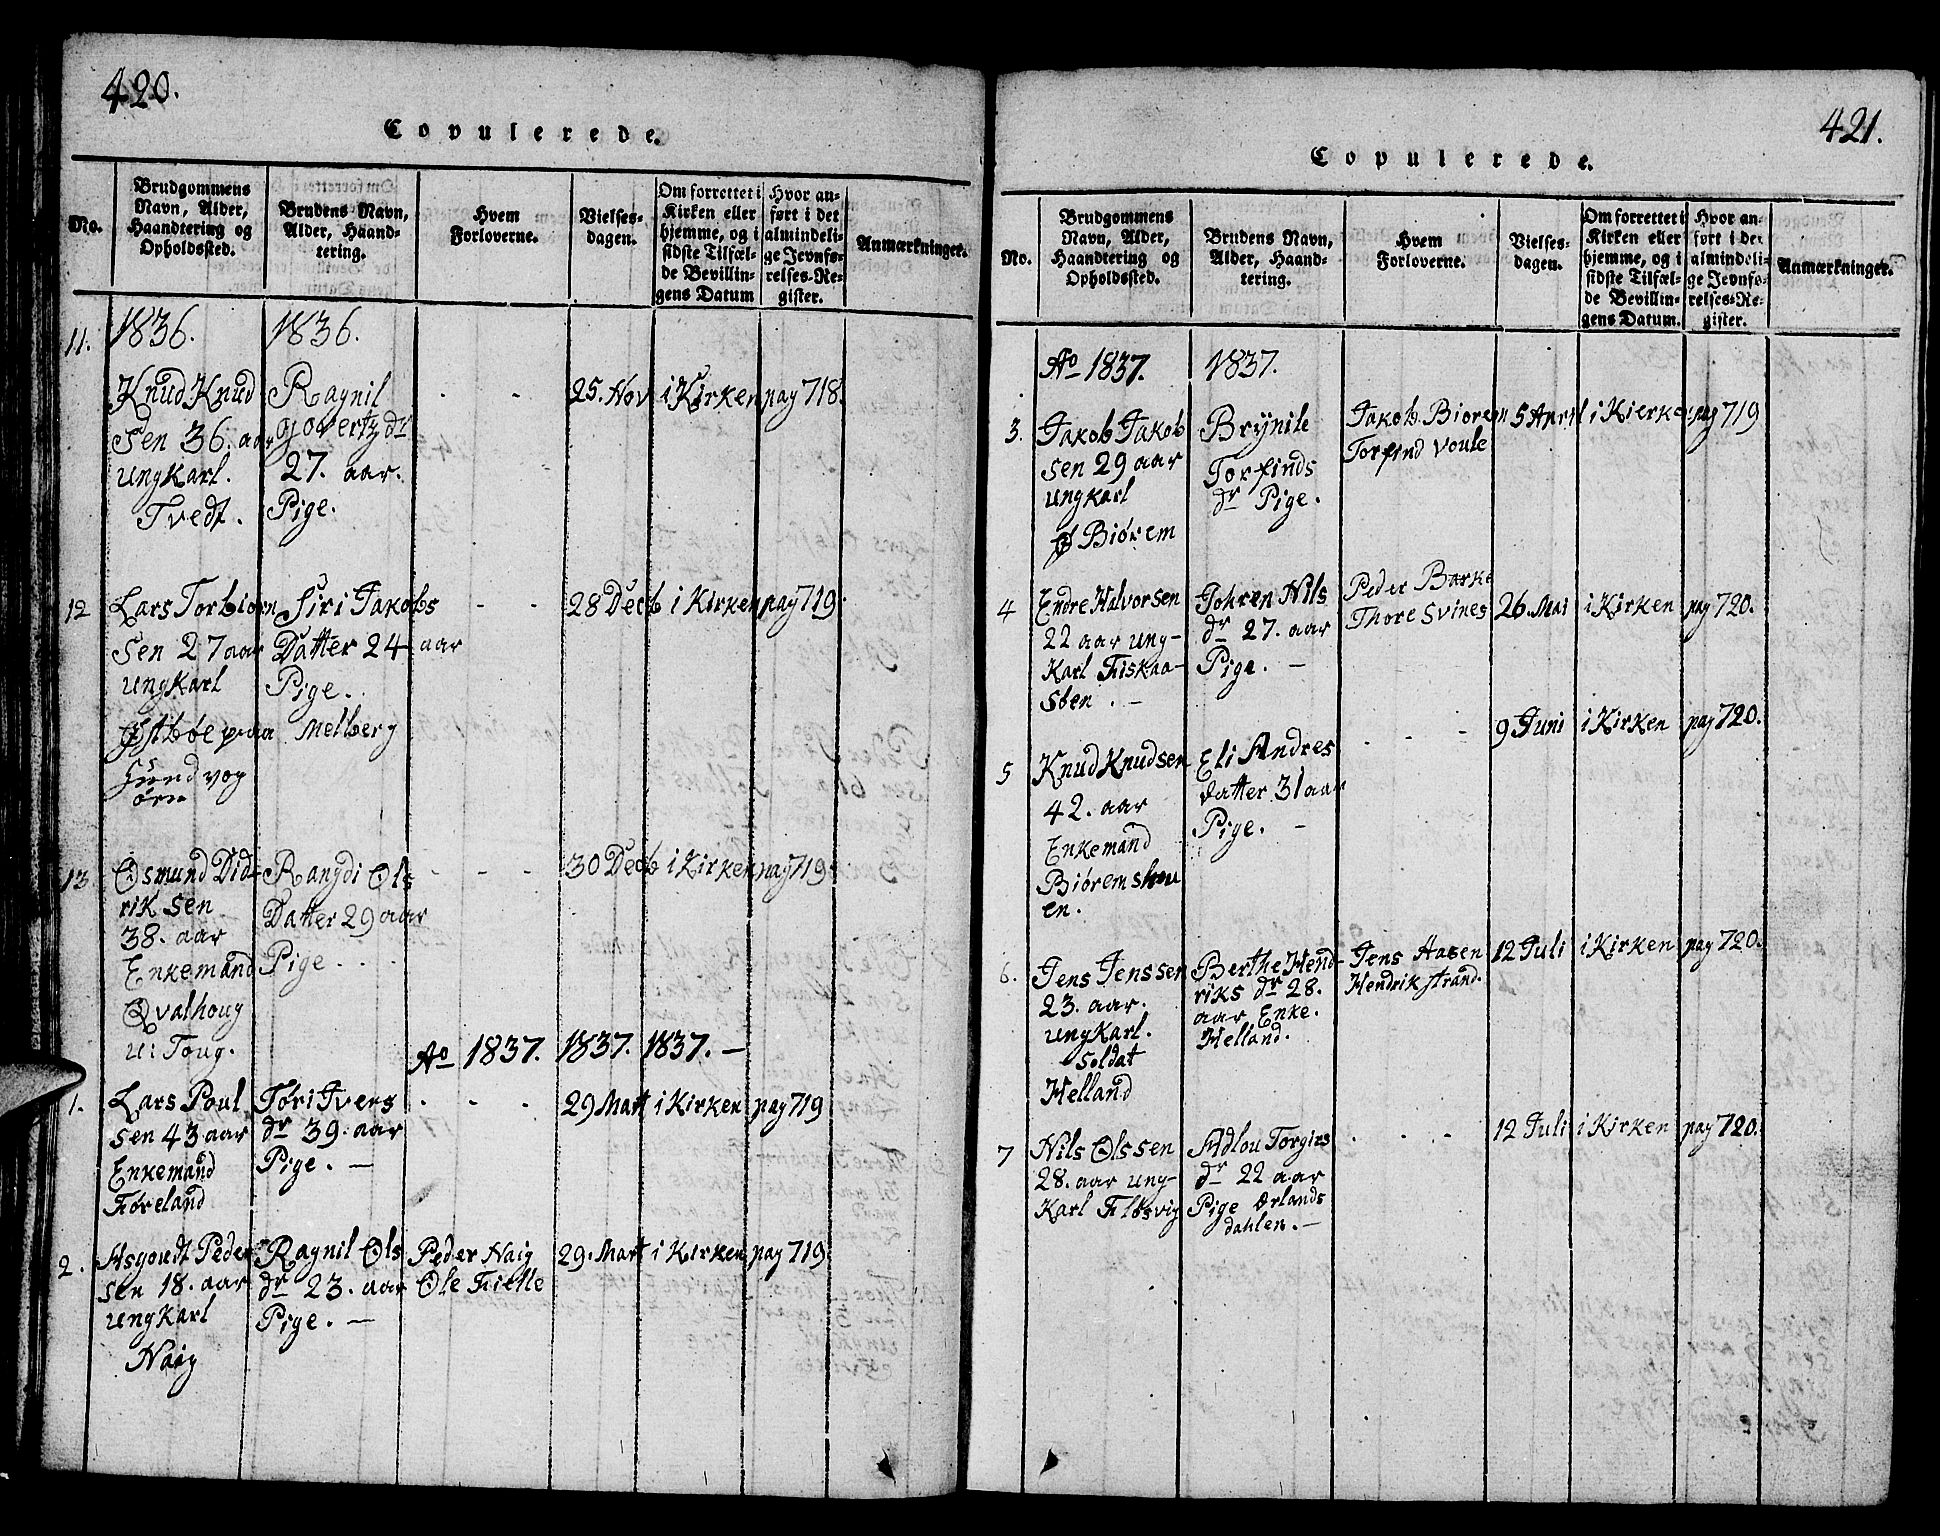 420.
Copulerede.
No.
Brudgommens
Navn, Alder,
Haandtering og
Opholdssted.
Brudens Navn,
Alder, Haand-
tering.
Hvem
Forloverne.
Vielses-
dagen.
Om forrettet i
Kirken eller
hjemme, og i
sidste Tilfæl-
de Bevillin-
gens Datum
Hvor an-
ført i det
almindeli-
ge Jevnfø-
relses-Re-
gister.
Anmærkninger.
1836. 1836.
11.
Knud Knud
Sen 36. aar
ungkarl.
Tvedt.
Ragnil
Govertz dr
27. aar.
Pige.
- -
25. Nov i Kirken pag 718.
12
Lars Torbiørn
Sen 27 aar
ungkarl
Østbøe paa
Hundvog
øen
Siri Jakobs
Datter 24 aar
Pige.
Melberg
- -
28 Decb i Kirken pag 719.
13
Osmund Did-
rik sen
38. aar
Enkemand
Qvalhoug
u: Toug.
Rangdi Ols
Datter 29 aar
Pige . .
- - -
30 Decb i Kirken pag 719.
Ao 1837. 1837. 1837. -
1.
Lars Poul
sen 43 aar
Enkemand
Føreland
Tøri Ivers
dr 39. aar
Pige. -
- - -
29 Mart i Kirken pag 719
2.
Asgoudt Peder
sen 18. aar
ungkarl
Naig
Ragnil Ols
dr 23. aar
Pige. -
Peder Naig
Ole Fielle
29. Mart i Kirken pag 719
421.
Copulerede.
No.
Brudgommens
Navn, Alder,
Haandtering og
Opholdssted.
Brudens Navn,
Alder, Haand-
tering.
Hvem
Forloverne.
Vielses-
dagen.
Om forrettet i
Kirken eller
hjemme, og i
sidste Tilfæl-
de Bevillin-
gens Datum.
Hvor an-
ført i det
almindeli-
ge Jevnfø-
relses-Re-
gister.
Anmærkninger.
Ao 1837. 1837.
3.
Jakob Jakob
sen 29 aar
ungkarl
Biørem
Brynile
Torfinds
dr Pige.
Jakob Biorem
Torfind Voule
5 April i Kierken pag 719
4
Endre Halvorsen
22 aar ung-
Karl Fiskaa-
Søen. -
Johren Nils
dr 27. aar
Pige. -
Peder Barke
Thore Svines
26. Mai i Kirken pag 720.
5
Knud Knudsen
42. aar
Enkemand
Biørems hou
en.
Eli Andres
datter 31 aar
Pige. -
- - -
9 Juni i Kirken pag 720.
6.
Jens Jenssen
23. aar.
ungKarl.
Soldat
Helland
Berthe Hend-
riks dr 28.
aar Enke.
Helland.
Jens Aasen
Hendrik strand.
12 Juli i Kirken pag 720.
7
Nils Olssen
28. aar ung-
Karl Fløsvig
Adlou Torgirs
dr 22 aar
Pige Ørlands
dahlen. -
- - -
12 Juli i Kirken pag 720.